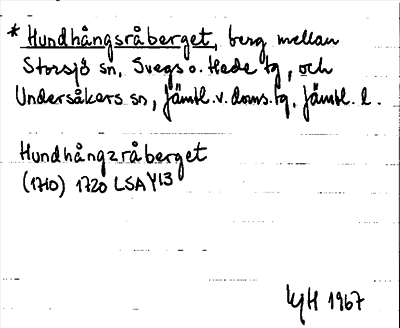 * Hundhångsråberget, berg mellan
Storsjö sn, Svegs o. Hede tg, och
Undersåkers sn, Jämtl. v. doms. tg. Jämtl. l.
Hundhångzråberget
(1710) 1720 LSA Y13
1967